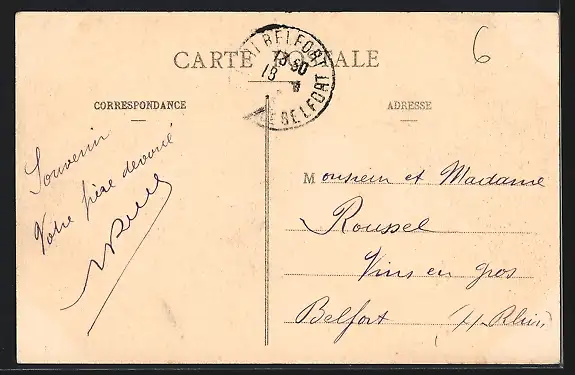 6
CARTE POSTALE
BELFORT
13 30
18
BELFORT
CORRESPONDANCE
ADRESSE
Souvenir
Votre frère dévoué
Monsieur et Madame
Roussel
Vins en gros
Belfort (H-Rhin)